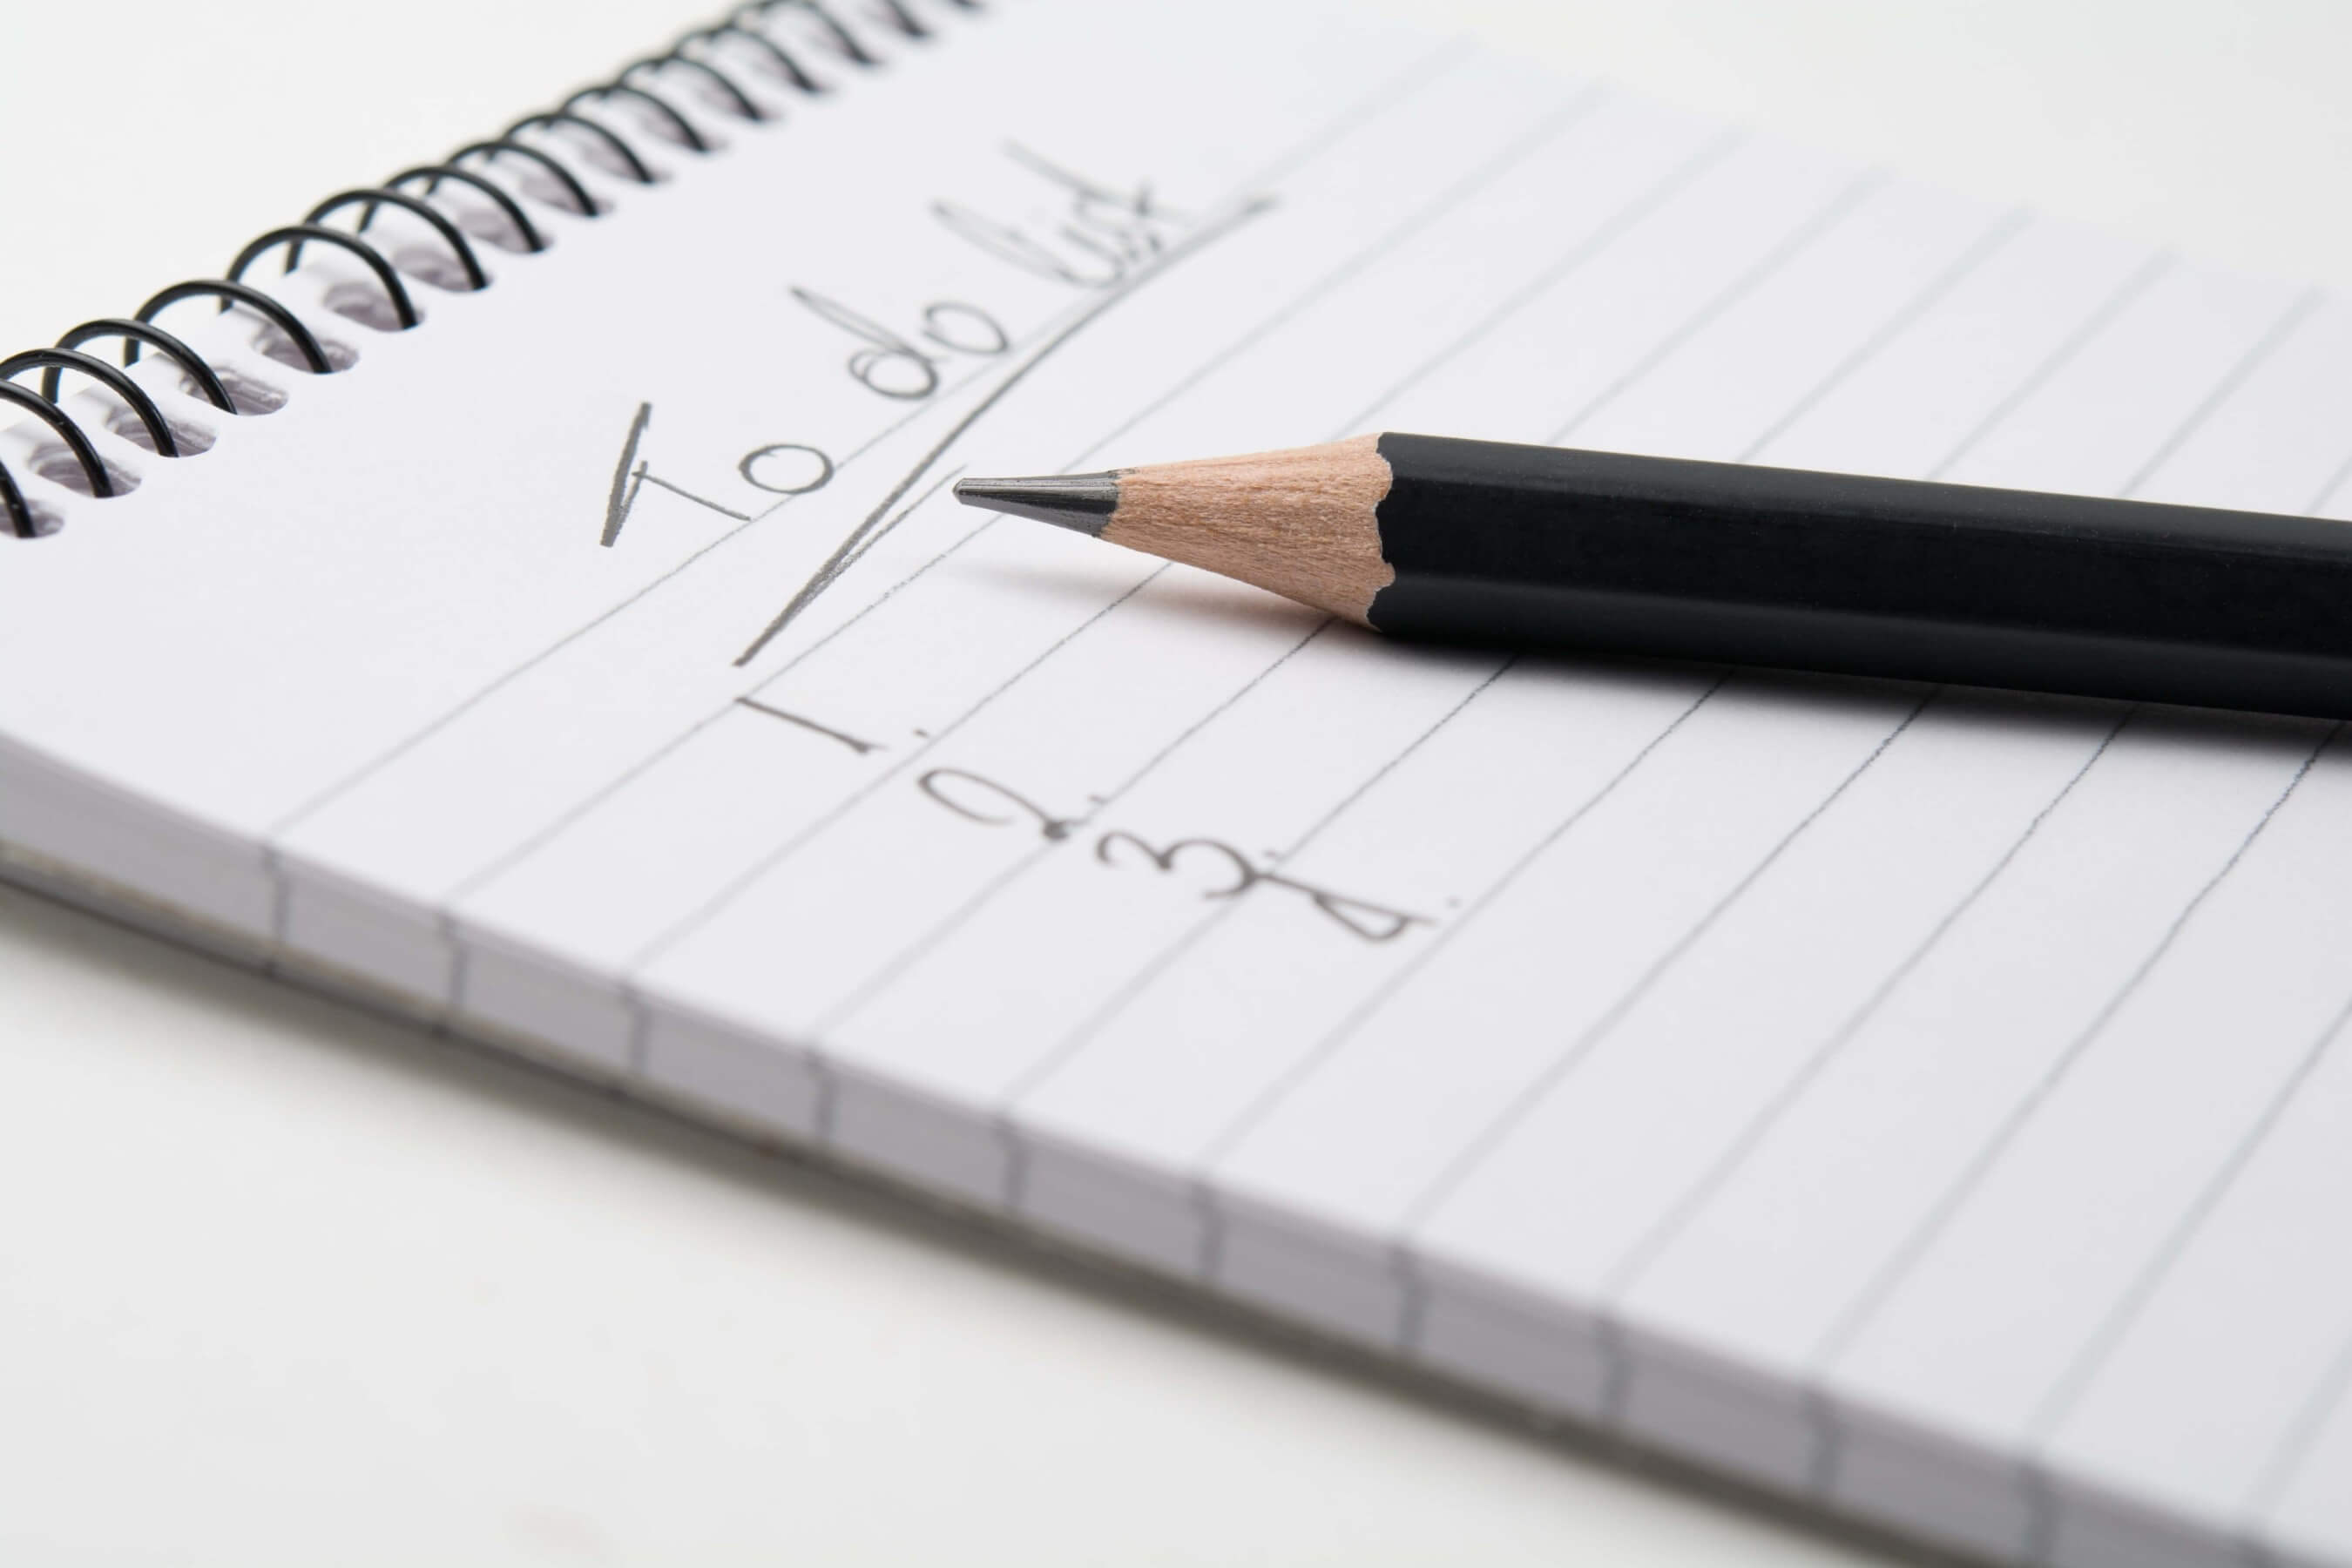 To do list
1.
2.
3.
4.